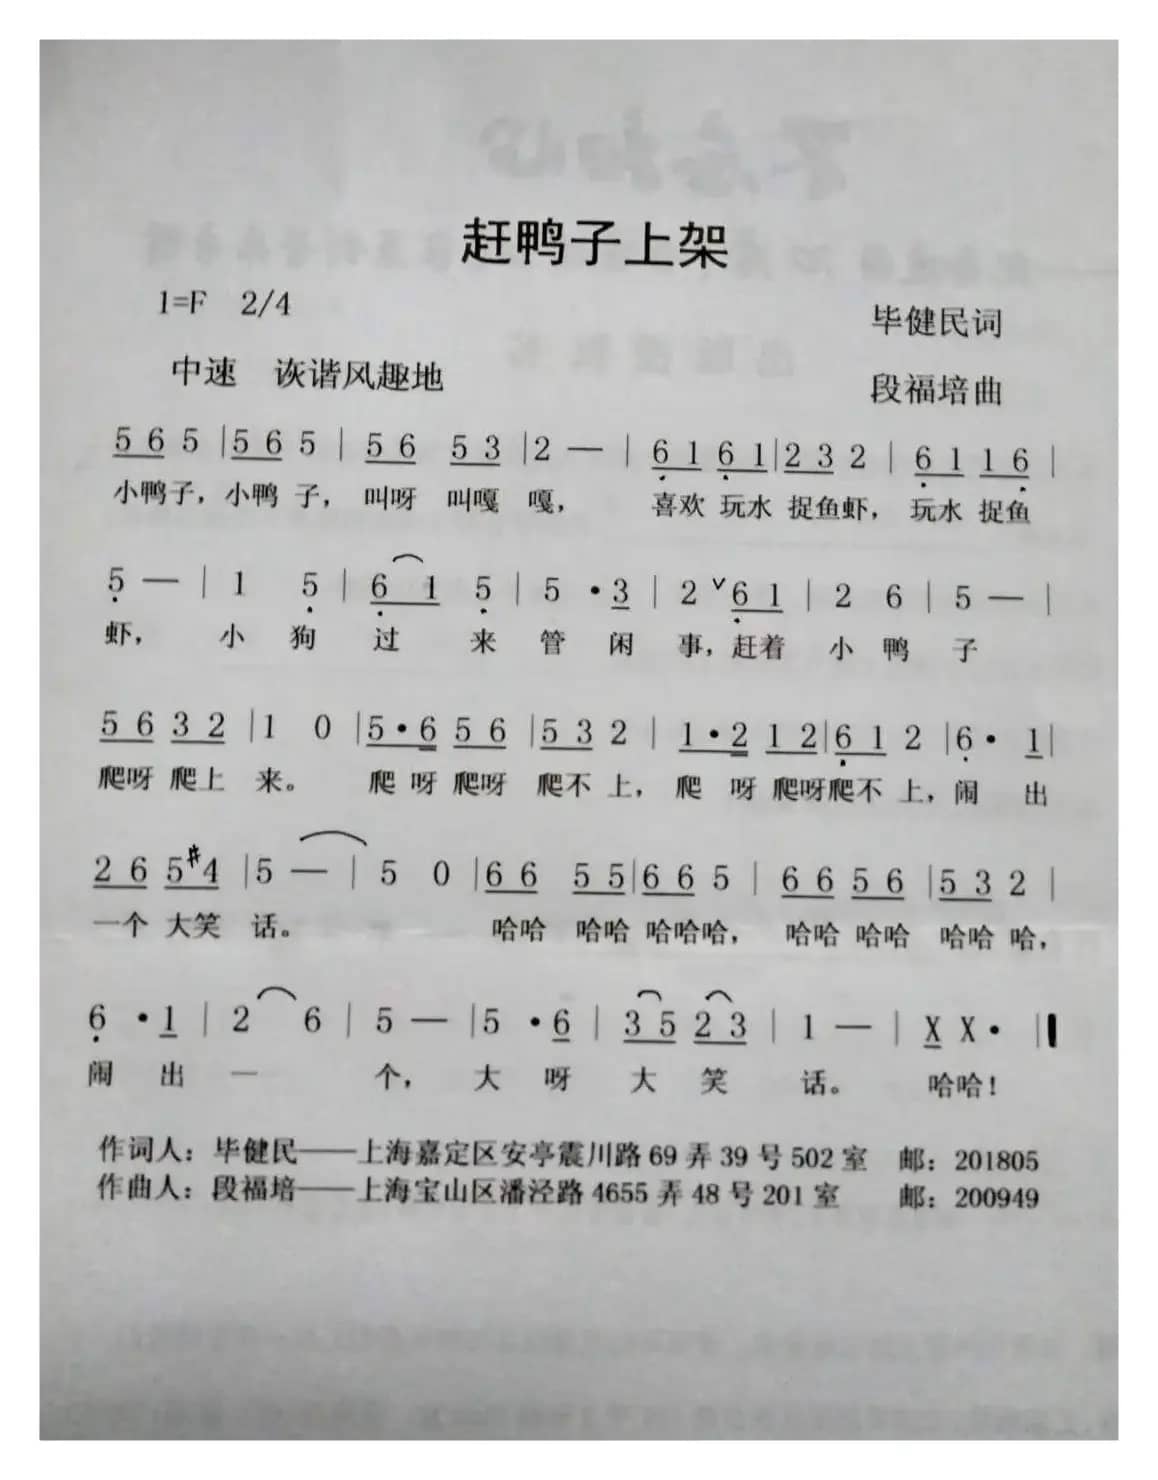 赶鸭子上架
1=F 2/4
毕健民词
中速 诙谐风趣地
段福培曲
5 6 5 | 5 6 5 | 5 6 5 3 | 2 — | 6̣ 1 6̣ 1 | 2 3 2 | 6̣ 1 1 6̣ |
小鸭子，小鸭 子， 叫呀 叫嘎 嘎， 喜欢 玩水 捉鱼虾， 玩水 捉鱼
5̣ — | 1 5̣ | 6̣ 1 5̣ | 5 · 3 | 2 ˅ 6̣ 1 | 2 6 | 5 — |
虾， 小 狗 过 来 管 闲 事，赶着 小 鸭 子
5 6 3 2 | 1 0 | 5 · 6 5 6 | 5 3 2 | 1 · 2 1 2 | 6̣ 1 2 | 6̣ · 1 |
爬呀 爬上 来。 爬 呀 爬呀 爬不 上， 爬 呀 爬呀爬不 上，闹 出
2 6 5 #4 | 5 — | 5 0 | 6 6 5 5 | 6 6 5 | 6 6 5 6 | 5 3 2 |
一个 大笑 话。 哈哈 哈哈 哈哈哈， 哈哈 哈哈 哈哈 哈，
6̣ · 1 | 2 6 | 5 — | 5 · 6 | 3 5 2 3 | 1 — | X X · ‖
闹 出 一 个， 大 呀 大 笑 话。 哈哈！
作词人：毕健民——上海嘉定区安亭震川路 69 弄 39 号 502 室 邮：201805
作曲人：段福培——上海宝山区潘泾路 4655 弄 48 号 201 室 邮：200949